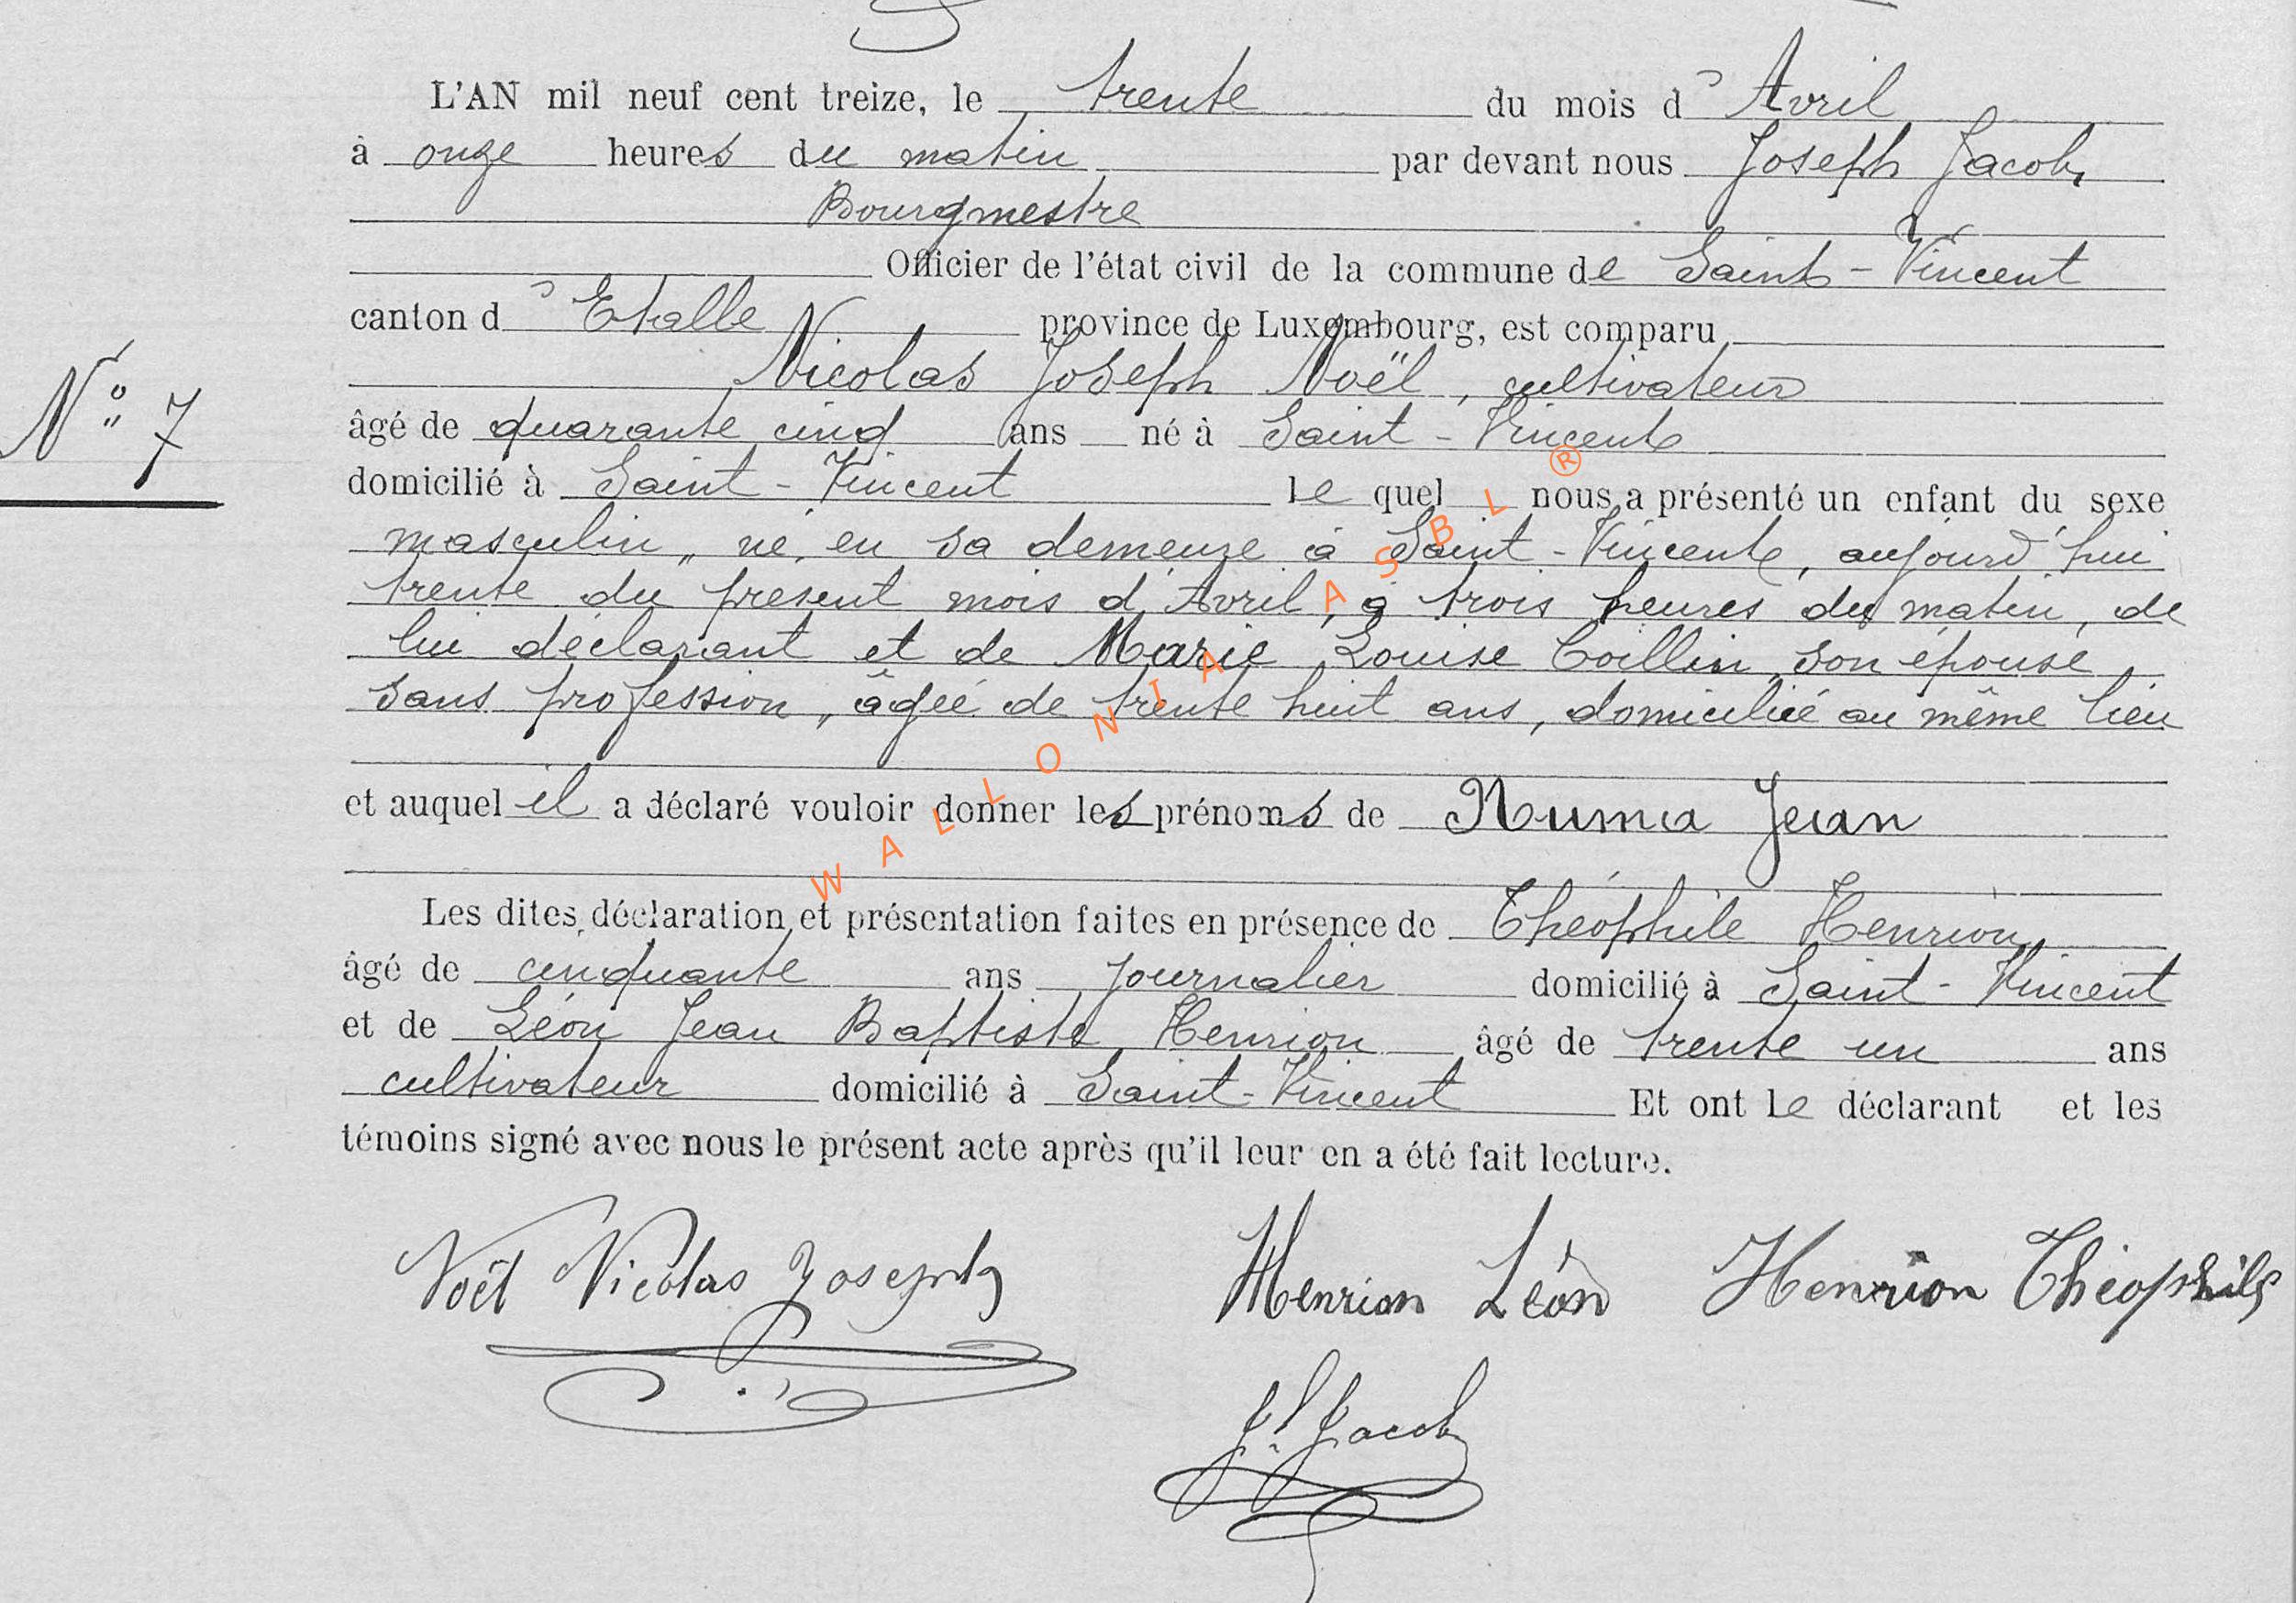 L'AN mil neuf cent treize, le trente du mois d'Avril
à onze heures du matin par devant nous Joseph Jacob,
Bourgmestre
Officier de l'état civil de la commune de Saint-Vincent
canton d'Etalle province de Luxembourg, est comparu
Nicolas Joseph Noël, cultivateur
N° 7
âgé de quarante cinq ans né à Saint-Vincent
domicilié à Saint-Vincent le quel nous a présenté un enfant du sexe
masculin, né, en sa demeure à Saint-Vincent, aujourd'hui
trente du présent mois d'Avril, à trois heures du matin, de
lui déclarant et de Marie Louise Coillin, son épouse,
sans profession, âgée de trente huit ans, domiciliée au même lieu
et auquel il a déclaré vouloir donner les prénoms de Numa Jean
Les dites déclaration et présentation faites en présence de Théophile Henrion,
âgé de cinquante ans journalier domicilié à Saint-Vincent
et de Léon Jean Baptiste Henrion âgé de trente un ans
cultivateur domicilié à Saint-Vincent Et ont le déclarant et les
témoins signé avec nous le présent acte après qu'il leur en a été fait lecture.
Noël Nicolas Joseph Henrion Léon Henrion Théophile
Js. Jacob
WALLONIA ASBL ®